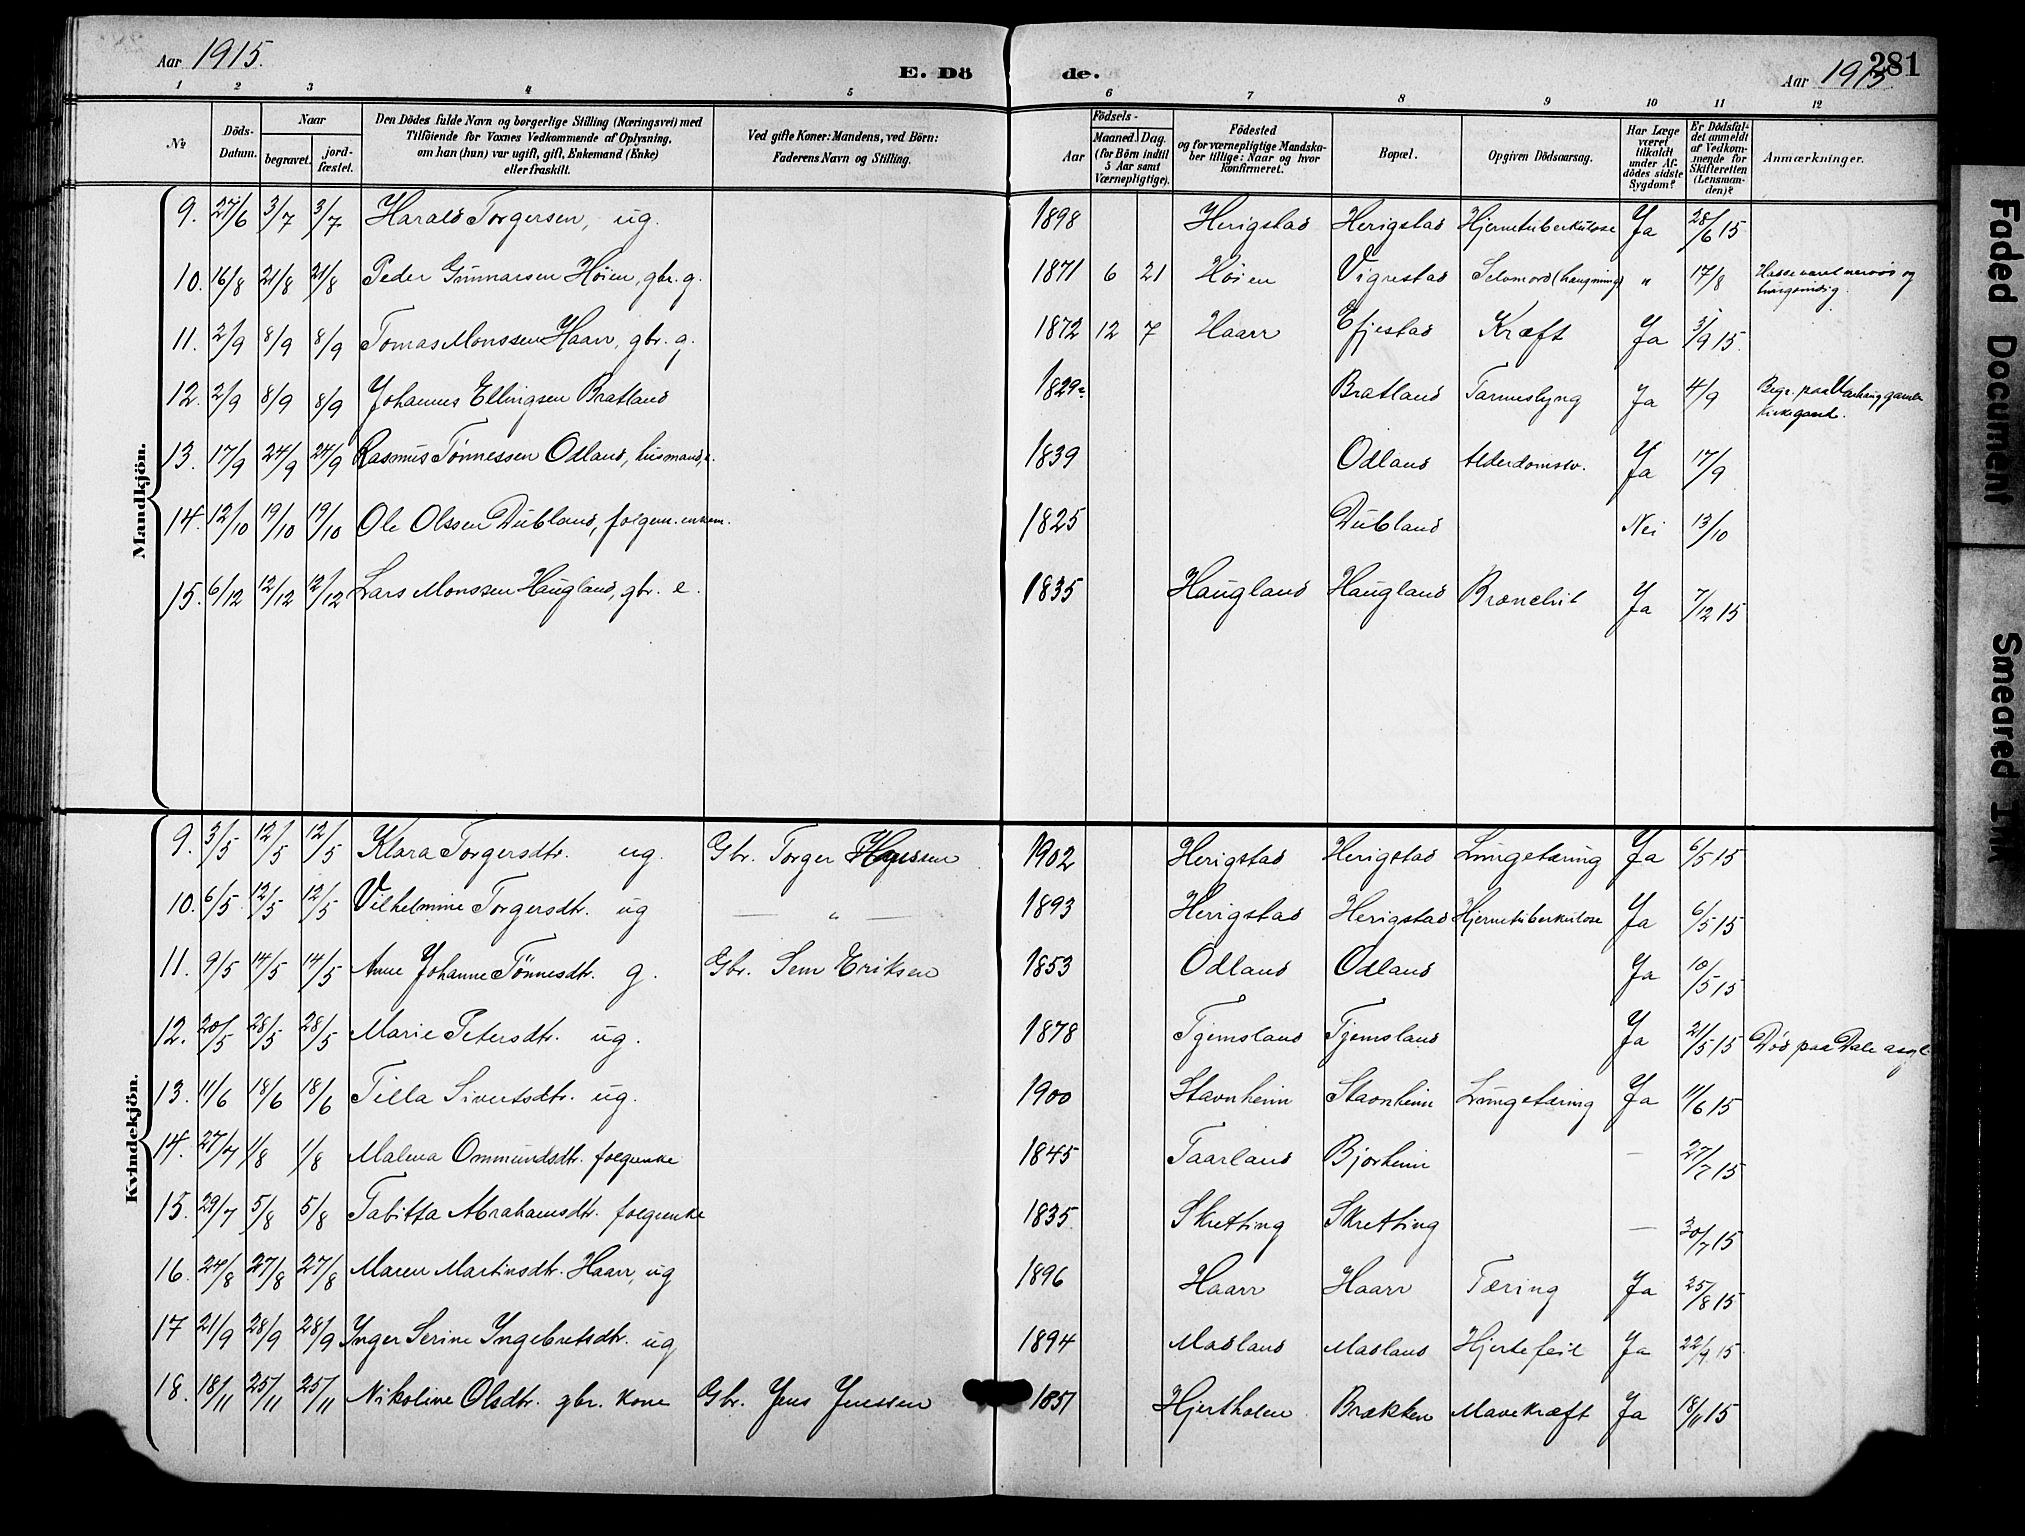 Aar 1915.
E. Dö de.
Aar 1915.
281
1 2 3 4 5 6 7 8 9 10 11 12
№
Döds-
Datum.
Naar
begravet.
jord-
fæstet.
Den Dödes fulde Navn og borgerlige Stilling (Næringsvei) med
Tilföiende for Voxnes Vedkommende af Oplysning.
om han (hun) var ugift, gift, Enkemand (Enke)
eller fraskilt.
Ved gifte Koner: Mandens, ved Börn:
Faderens Navn og Stilling.
Födsels-
Aar
Maaned. Dag.
(for Börn indtil
5 Aar samt
Værnepligtige).
Födested
og for værnepligtige Mandska-
ber tillige: Naar og hvor
konfirmeret.
Bopæl.
Opgiven Dödsaarsag.
Har Læge
været
tilkaldt
under Af-
dödes sidste
Sygdom?
Er Dödsfal-
det anmeldt
af Vedkom-
mende for
Skifteretten
(Lensman-
den)?
Anmærkninger.
Mandkjön.
9. 27/6 3/7 3/7 Harald Torgersen, ug. 1898 Herigstad Herigstad Hjernetuberkulose Ja 28/6 15
10. 16/8 21/8 21/8 Peder Gunnarsen Höien, gbr. g. 1871 6 21 Höien Vigrestad Selvmord (hængning) " 17/8 været nervös og
tungsindig.
11. 2/9 8/9 8/9 Tomas Monssen Haarr, gbr. g. 1872 12 7 Haarr Efjestad Kræft Ja 3/9 15.
12. 2/9 8/9 8/9 Johannes Ellingsen Bratland 1829 Bratland Tarmeslyng Ja 4/9 Begr. paa Varhaug gamle
kirkegaard.
13. 17/9 24/9 24/9 Rasmus Tönnessen Odland, husmand, e. 1839 Odland Alderdomssv. Ja 17/9
14. 12/10 19/10 19/10 Ole Olssen Dubland, folgem. enkem. 1825 Dubland Nei 13/10
15. 6/12 12/12 12/12 Lars Monssen Haugland, gbr. e. 1835 Haugland Haugland Ja 7/12 15
Kvindekjön.
9. 3/5 12/5 12/5 Klara Torgersdtr. ug. Gbr. Torger 1902 Herigstad Herigstad Lungetæring Ja 6/5 15
10. 6/5 12/5 12/5 Vilhelmine Torgersdtr. ug — " — 1893 Herigstad Herigstad Hjernetuberkulose Ja 6/5 15
11. 9/5 14/5 14/5 Anne Johanne Tönnesdtr. g. Gbr. Sem Eriksen 1853 Odland Odland Ja 10/5 15
12. 20/5 28/5 28/5 Marie Petersdtr. ug. 1878 Tjemsland Tjemsland Ja 21/5 15 Död paa Dale asyl
13. 11/6 18/6 18/6 Tilla Sivertsdtr. ug. 1900 Stavnheim Stavnheim Lungetæring Ja 11/6 15
14. 27/7 1/8 1/8 Malena Ommundsdtr. folgeenke 1845 Taarland Bjorheim — 27/7 15
15. 29/7 5/8 5/8 Tabitta Abrahamsdtr. folgeenke 1835 Skretting Skretting — 30/7 15
16. 24/8 27/8 27/8 Maren Martinsdtr. Haarr, ug 1896 Haarr Haarr Tæring Ja 25/8 15
17 21/9 28/9 28/9 Inger Serine Ingebretsdtr. ug 1894 Madland Madland Hjertefeil Ja 22/9 15.
18. 18/11 25/11 25/11 Nikoline Olsdtr. gbr. kone Gbr. Jens Jenssen 1851 Hjertholen Brækken Mavekræft Ja 18/11 15
Faded Document
Smeared Ink